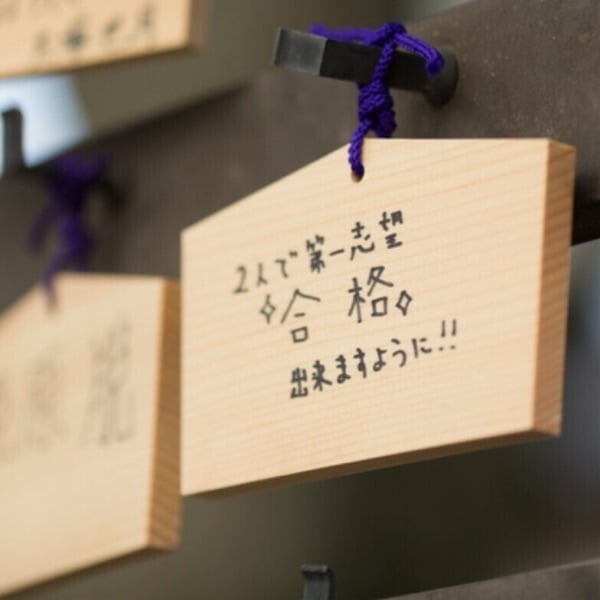 2人で第一志望
✧合格✧
出来ますように!!